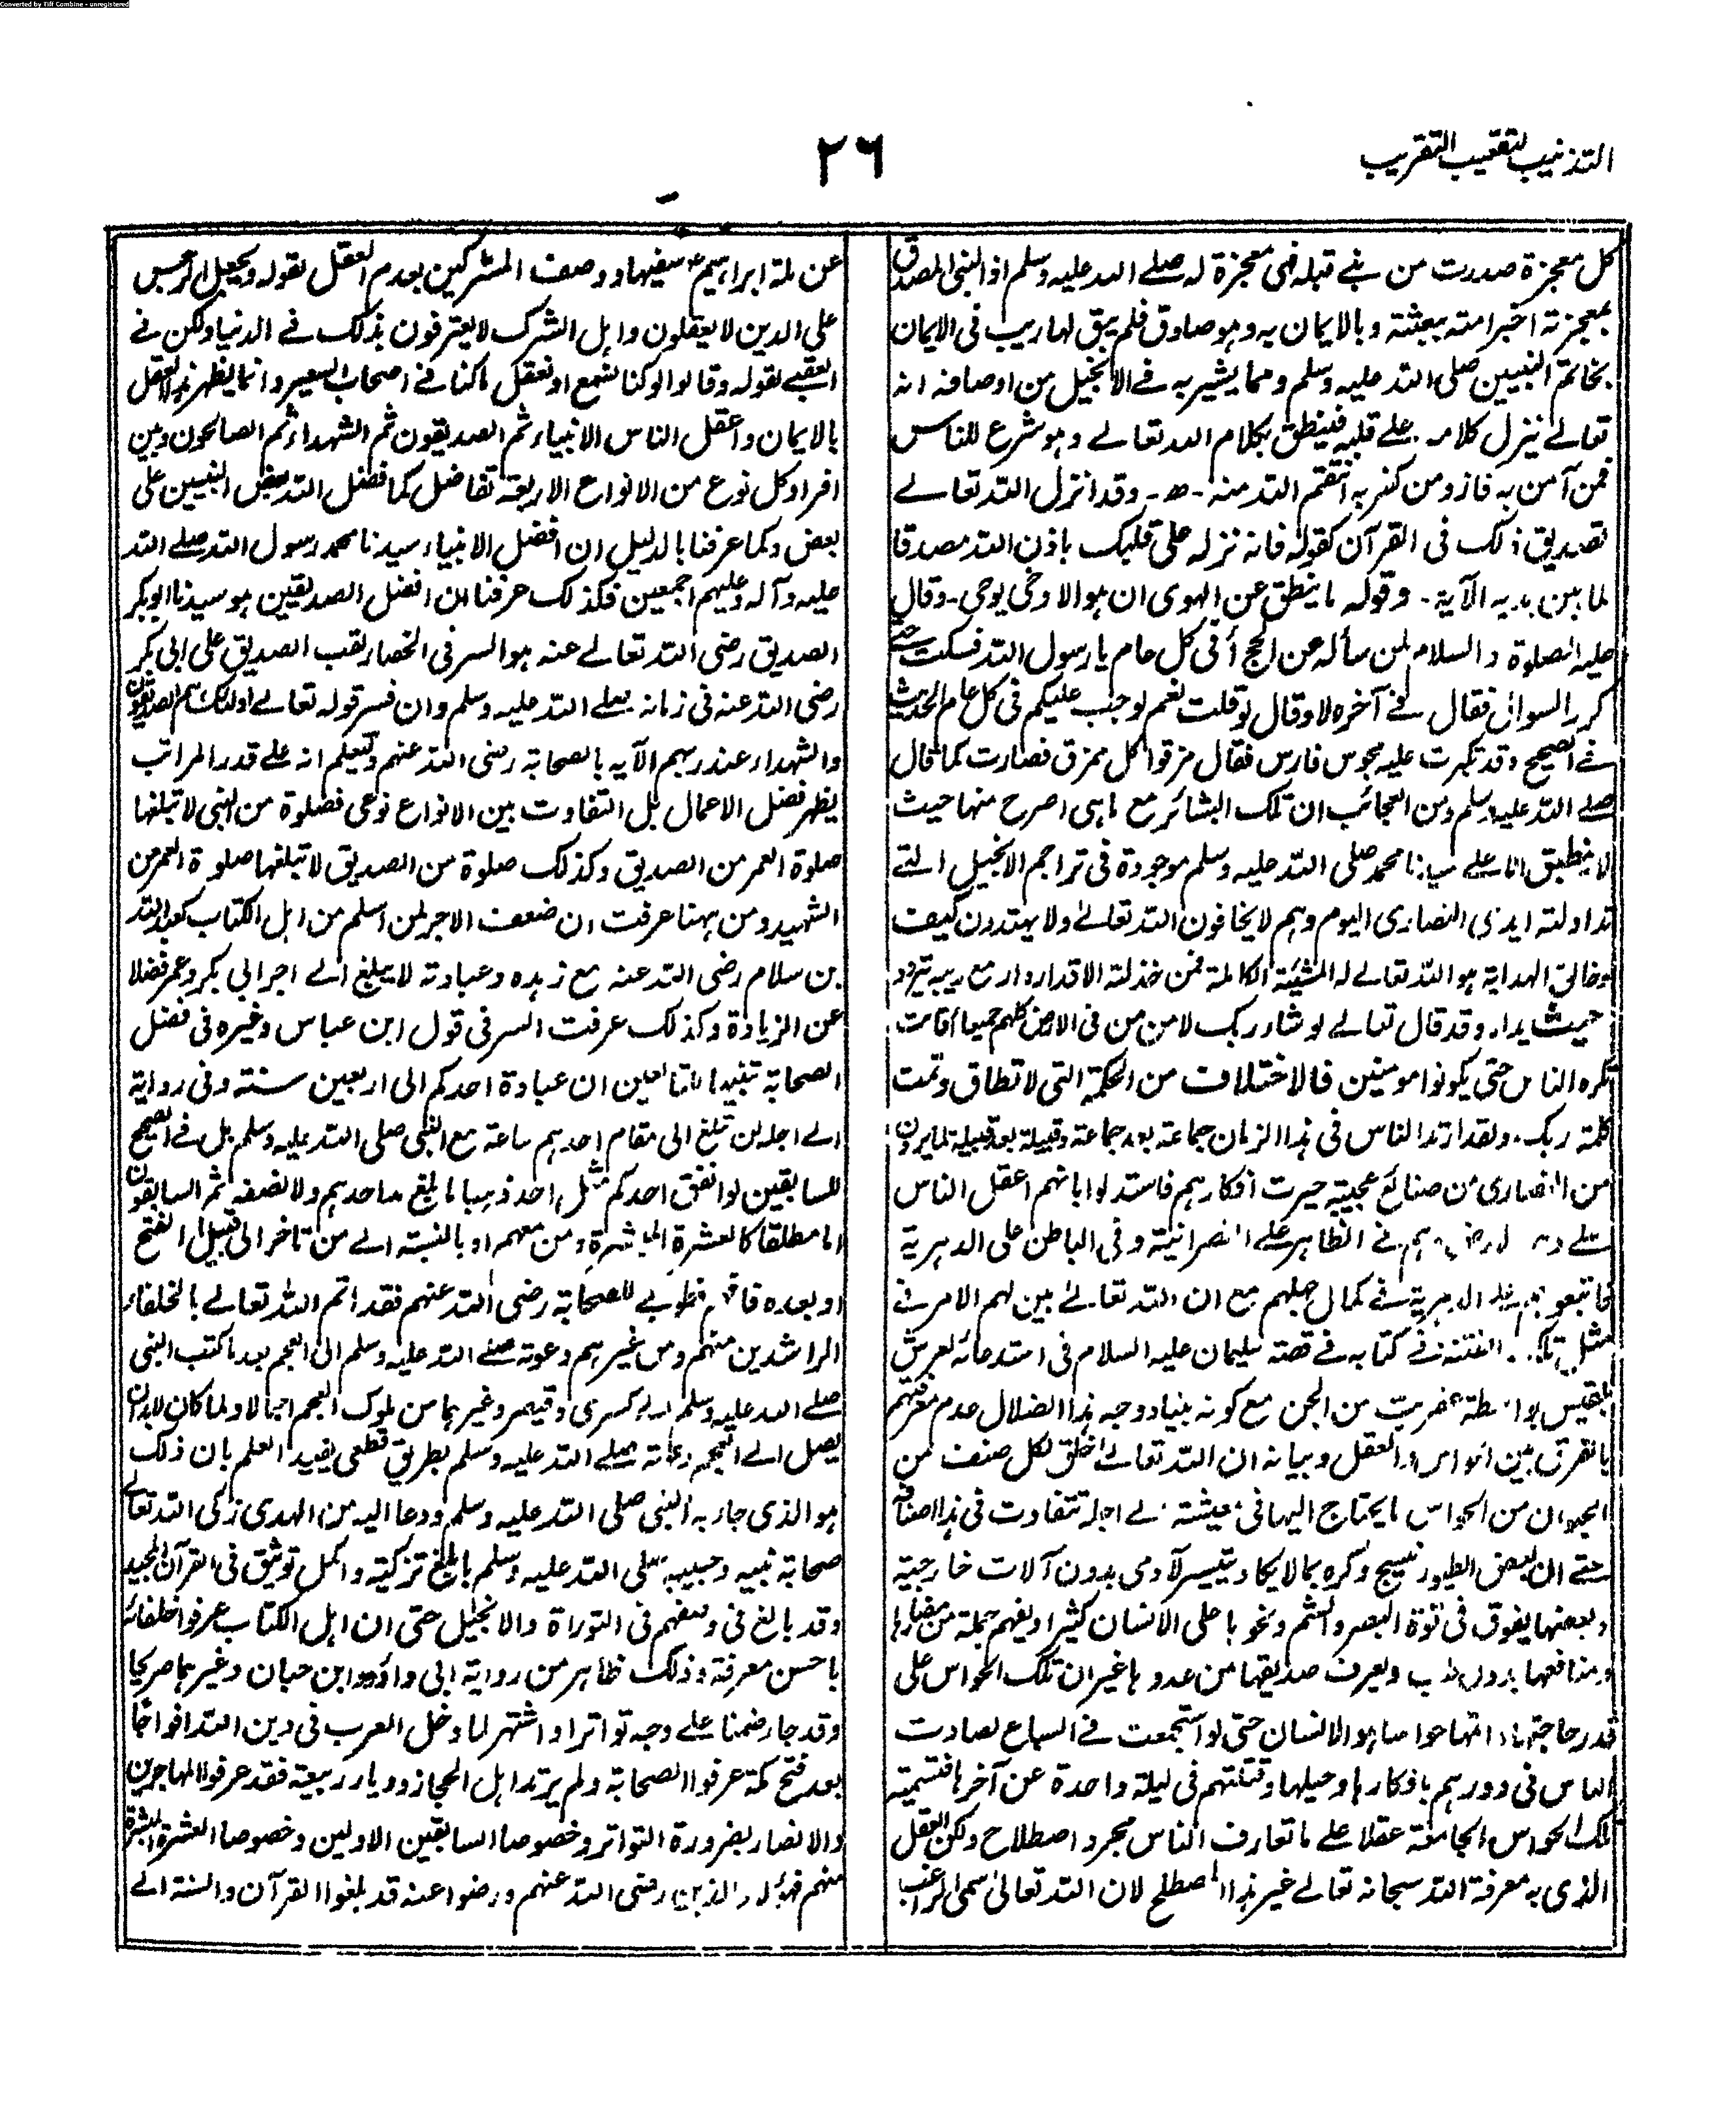 Converted by Tiff Combine - unregistered
التذنيب لتعقيب التقريب
٢٦
كل معجزة صدرت من نبي قبله فهى معجزة له صلے الله عليه وسلم اذ النبى المصدق
بمعجزته اخبر امته ببعثته وبالايمان به وهو صادق فلم يبق لها ريب فى الايمان
بخاتم النبيين صلى الله عليه وسلم ومما يشير به فے الانجيل من اوصافه انه
تعالے ينزل كلامه علے قلبه فينطق بكلام الله تعالے وهو شرع للناس
فمن آمن به فاز ومن كفر به انتقم الله منه ـ ھ ـ وقد انزل الله تعالے
تصديق ذلك فى القرآن كقوله فانه نزله على قلبك باذن الله مصدقا
لما بين يديه الآية ـ وقوله ما ينطق عن الهوى ان هو الا وحى يوحى ـ وقال
عليه الصلوة والسلام لمن سأله عن الحج أفى كل عام يا رسول الله فسكت حتے
كرر السوال فقال فے آخره لا وقال لو قلت نعم لوجب عليكم فى كل عام الحديث
فے الصحيح وقد تكبرت عليه مجوس فارس فقال مزقوا كل ممزق فصارت كما قال
صلے الله عليه وسلم ومن العجائب ان تلك البشائر مع ما هى اصرح منها حيث
لا ينطبق الا علے سيدنا محمد صلى الله عليه وسلم موجودة فى تراجم الانجيل التے
تداولته ايدى النصارى اليوم وهم لا يخافون الله تعالے ولا يهتدون كيف
وخالق الهداية هو الله تعالے له المشيئة الكاملة فمن خذلته الاقدار دار مع ريبه
حيث يدار وقد قال تعالے لو شاء ربك لامن من فى الارض كلهم جميعا أفانت
تكره الناس حتى يكونوا مومنين فالاختلاف من الحكمة التى لا تطاق وتمت
كلمة ربك ـ ولقد ارتد الناس فى هذا الزمان جماعة بعد جماعة وقبيلة بعد قبيلة لما يرون
من النصارى من صنائع عجيبة حيرت افكارهم فاستدلوا بانهم اعقل الناس
هم فے الظاهر علے النصرانية وفى الباطن على الدهرية
فاتبعوهم الدهرية فے كمال جهلهم مع ان الله تعالے بين لهم الامر فے
مثل الفتنة فے كتابه فے قصة سليمان عليه السلام فى استدعائه لعرش
بلقيس بواسطة عفريت من الجن مع كونه بنياد وجه هذا الضلال عدم معرفتهم
بالفرق بين الحواس والعقل وبيانه ان الله تعالے خلق لكل صنف من
الحيوان من الحواس ما يحتاج اليها فى معيشته لے اجله تتفاوت فى هذا اصنافه
حتے ان لبعض الطيور نسيج وكره بما لا يكاد يتيسر لآدمى بدون آلات خارجية
وبعضها يفوق فى قوة البصر والشم ونحوها على الانسان كثيرا ويفهم جملة من مضارها
ومنافعها بدون طب ويعرف صديقها من عدوها غير ان تلك الحواس على
قدر حاجتها وانتها حواسا هو الانسان حتى لو استجمعت فے السباع لصادت
الناس فى دورهم بافكارها وحيلها وقتلتهم فى ليلة واحدة عن آخرها فتسمية
تلك الحواس الجامعة عقلا علے ما تعارف الناس مجرد اصطلاح ولكن العقل
الذى به معرفة الله سبحانه تعالے غير هذا المصطلح لان الله تعالى سمى الراغب
عن ملة ابراهيم سفيها ووصف المشركين بعدم العقل لقوله ويجعل الرجس
على الذين لا يعقلون واهل الشرك لا يعترفون بذلك فے الدنيا ولكن فے
العقبے لقوله وقالوا لو كنا نسمع او نعقل ما كنا فے اصحاب السعير وانما يظهر هذا العقل
بالايمان واعقل الناس الانبياء ثم الصديقون ثم الشهداء ثم الصالحون وبين
افراد كل نوع من الانواع الاربعة تفاضل كما فضل الله بعض النبيين على
بعض وكما عرفنا بالدليل ان افضل الانبياء سيدنا محمد رسول الله صلے الله
عليه وآله وعليهم اجمعين فكذلك عرفنا ان افضل الصديقين هو سيدنا ابوبكر
الصديق رضى الله تعالے عنه هو السر فى انحصار لقب الصديق على ابى بكر
رضى الله عنه فى زمانه صلے الله عليه وسلم وان فسر قوله تعالے اولئك هم الصديقون
والشهداء عند ربهم الآيه بالصحابة رضى الله عنهم وليعلم انه علے قدر المراتب
يظهر فضل الاعمال بل التفاوت بين الانواع نوعى فصلوة من النبى لا تبلغها
صلوة العمر من الصديق وكذلك صلوة من الصديق لا تبلغها صلوة العمر من
الشهيد ومن ههنا عرفت ان ضعف الاجر لمن اسلم من اهل الكتاب كعبد الله
بن سلام رضى الله عنه مع زهده وعبادته لا يبلغ الے اجر ابى بكر وعمر فضلا
عن الزيادة وكذلك عرفت السر فى قول ابن عباس وغيره فى فضل
الصحابة تنبيها للتابعين ان عبادة احدكم الى اربعين سنة وفى رواية
الے اجله لن تبلغ الى مقام احدهم ساعة مع النبى صلى الله عليه وسلم بل فے الصحيح
للسابقين لو انفق احدكم مثل احد ذهبا ما بلغ مد احدهم ولا نصيفه ثم السابقون
اما مطلقا كالعشرة المبشرة ومن معهم او بالنسبة الے من تاخر الى قبيل الفتح
او بعده فطوبے للصحابة رضى الله عنهم فقد اتم الله تعالے بالخلفاء
الراشدين منهم ومن غيرهم دعوته صلے الله عليه وسلم الى العجم بعد ما كتب النبى
صلے الله عليه وسلم الے كسرى وقيصر وغيرهما من ملوك العجم اجمالا ولما كان لابد ان
يصل الے العجم دعوته صلے الله عليه وسلم بطريق قطعى يفيد العلم بان ذلك
هو الذى جاء به النبى صلى الله عليه وسلم ودعا اليه من الهدى زكى الله تعالے
صحابة نبيه وحبيبه صلى الله عليه وسلم بابلغ تزكية واكمل توثيق فى القرآن المجيد
وقد بالغ فى وصفهم فى التوراة والانجيل حتى ان اهل الكتاب عرفوا خلفائه
باحسن معرفة وذلك ظاهر من رواية ابى داؤد وابن حبان وغيرهما صريحا
وقد جاء ضمنا علے وجه تواترا واشتهر لما دخل العرب فى دين الله افواجا
بعد فتح مكة عرفوا الصحابة ولم يرتد اهل الحجاز وديار ربيعة فقد عرفوا المهاجرين
والانصار بضرورة التواتر وخصوصا السابقين الاولين وخصوصا العشرة المبشرة
منهم فهؤلاء الذين رضى الله عنهم ورضوا عنه قد بلغوا القرآن والسنة الے